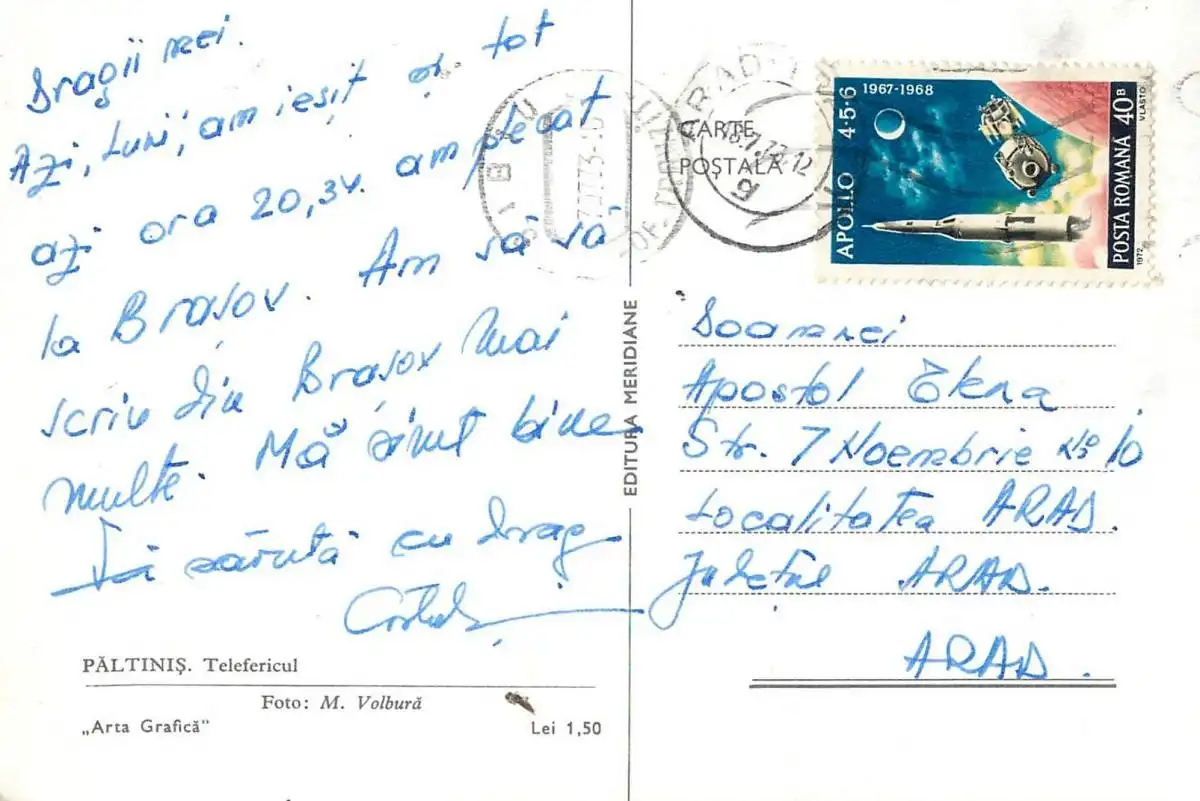 Dragii mei.
Azi, Luni, am ieșit și tot
azi ora 20,34. am plecat
la Brasov. Am să vă
scriu din Brasov mai
multe. Mă simt bine
Vă sărută cu drag
PĂLTINIȘ. Telefericul
Foto: M. Volbură
„Arta Grafică"
Lei 1,50
EDITURA MERIDIANE
SIBIU
ARAD
CARTE
POȘTALĂ
APOLLO 4·5·6
1967-1968
POSTA ROMANĂ 40B
VLASTO
1972
Doamnei
Apostol Elena
Str. 7 Noembrie No 10
Localitatea ARAD.
Județul ARAD.
ARAD.